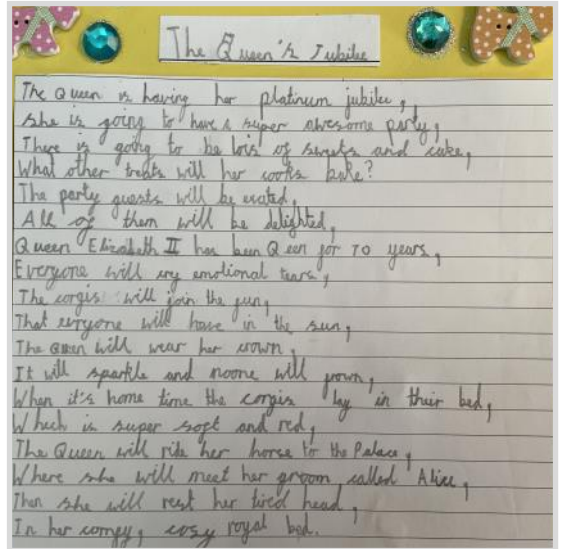 The Queen's Jubilee
The Queen is having her platinum jubilee,
She is going to have a super awesome party,
There is going to be lots of sweets and cake,
What other treats will her cooks bake?
The party guests will be exated,
All of them will be delighted,
Queen Elizabeth II has been Q een for 70 years,
Everyone will cry emotional tears,
The corgis will join the fun,
That evryone will have in the sun,
The Queen will wear her crown,
It will sparkle and noone will frown,
When it's home time the corgis lay in their bed,
Which is super soft and red,
The Queen will ride her horse to the Palace,
Where she will meet her groom called Alice,
Then she will rest her tired head,
In her comfy, cosy royal bed.